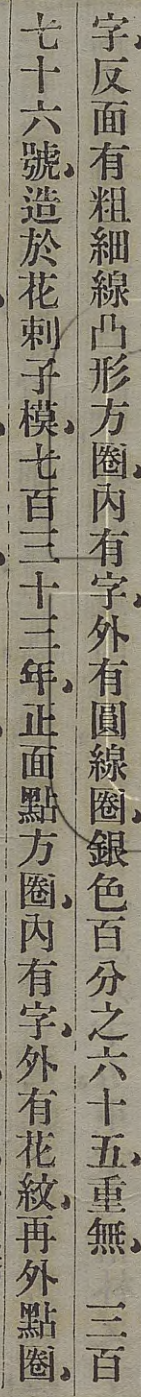 字反面有粗細線凸形方圈內有字外有圓線圈銀色百分之六十五重無　三百
七十六號造於花剌子模七百三十三年正面點方圈內有字外有花紋再外點圈